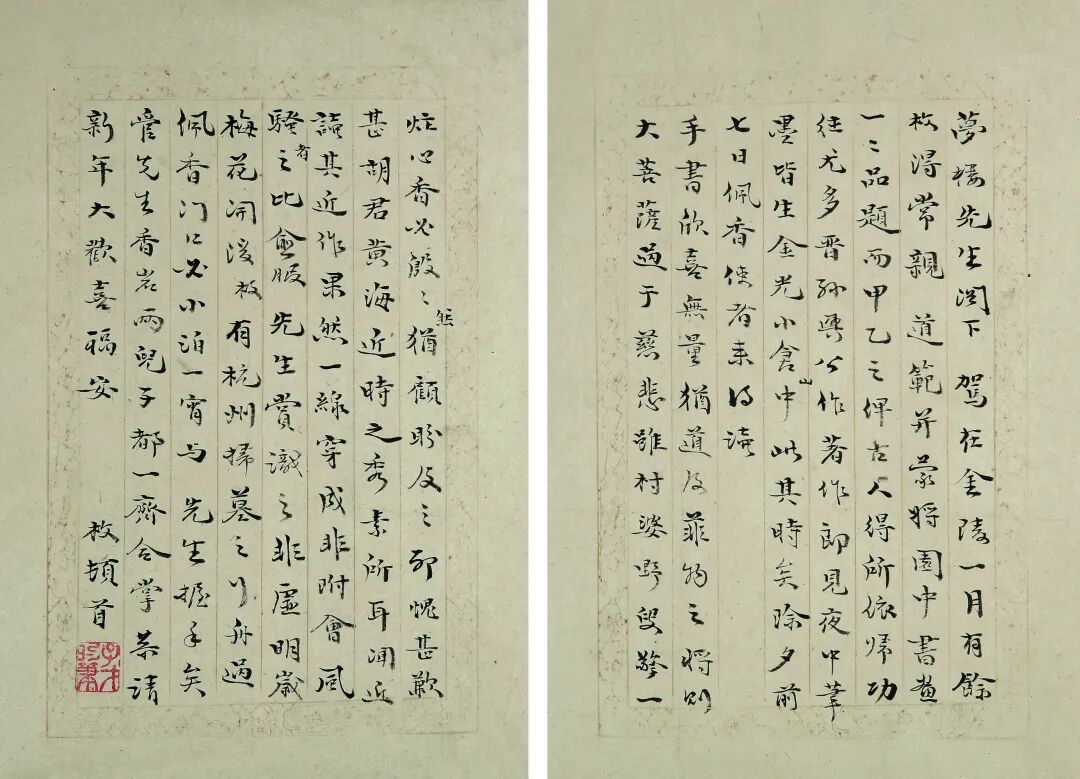 夢樓先生閣下 駕在金陵一月有餘
枚得常親 道範并蒙將園中書畫
一一品題而甲乙之俾古人得所依歸功
往尤多晋孫興公作著作郎見夜中筆
墨皆生金光小倉山中此其時矣除夕前
七日佩香使者來得讀
手書欣喜無量猶道及菲物之將則
大菩薩過于慈悲雖村婆野叟擎一
炷心香必殷殷然猶顧盼及之耶愧甚歉
甚胡君黃海近時之秀素所耳聞近
讀其近作果然一線穿成非附會風
騷者之比愈服先生賞識之非虛明歲
梅花開後枚有杭州掃墓之行舟過
佩香門口必小泊一宵与 先生握手矣
霞先生香岩兩兒子都一齊合掌恭請
新年大歡喜福安
枚頓首